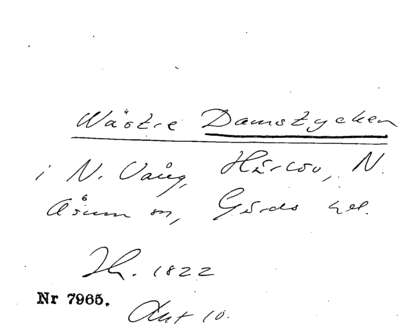 Wästre Damstycken
i N. Vång, Härlöv, N.
Åsum sn, Gärds hd.
Jh. 1822
Nr 7965. Akt 10.